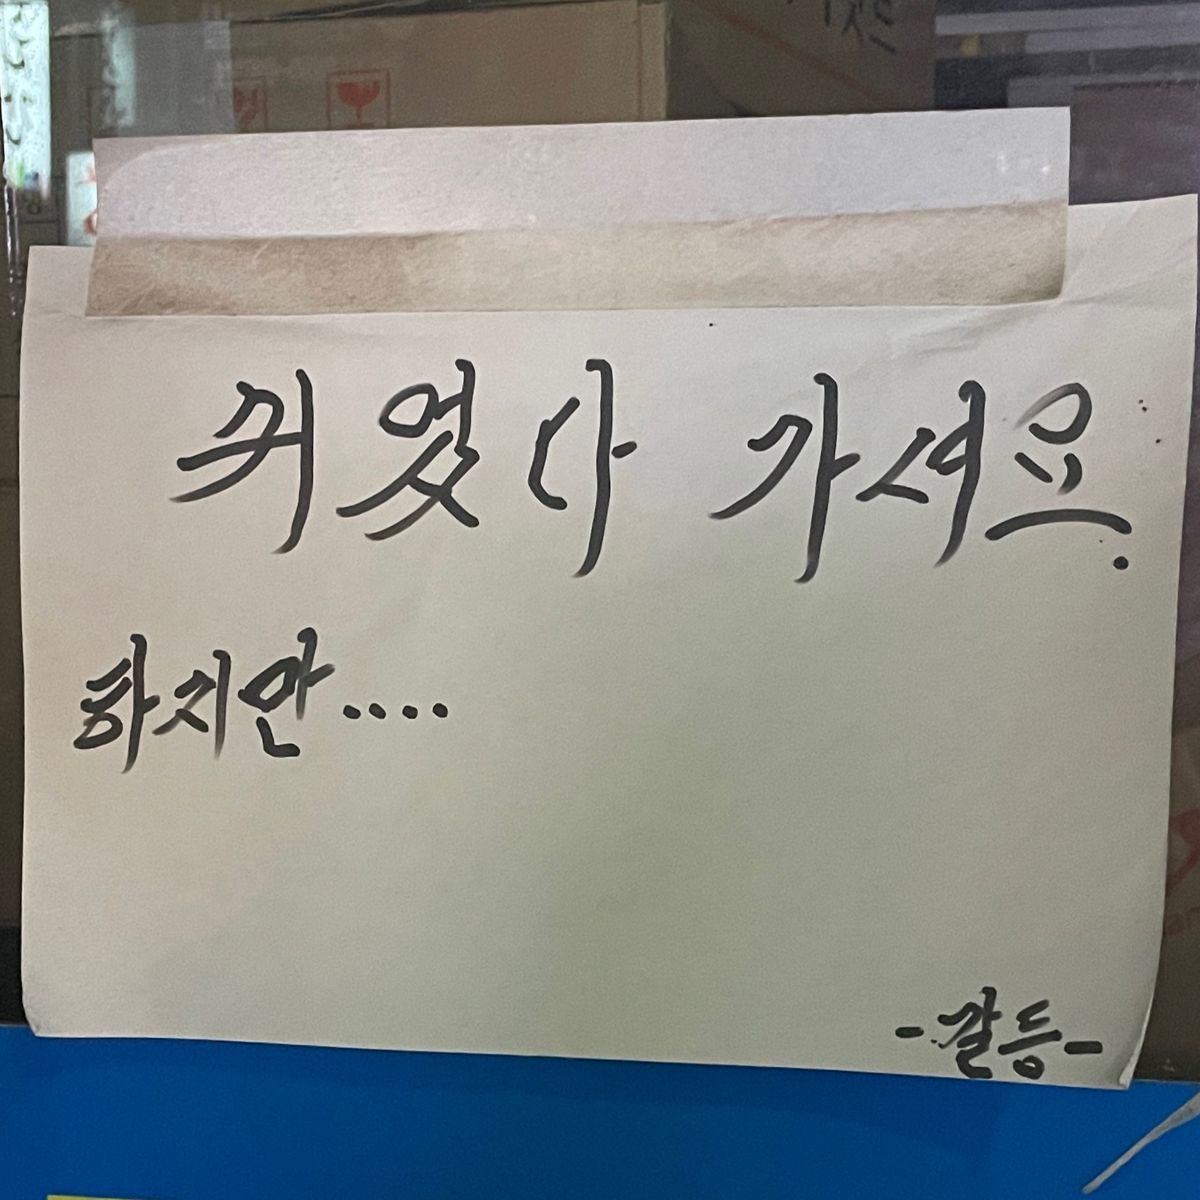 쉬었다 가셔요.
하지만....
-갈등-